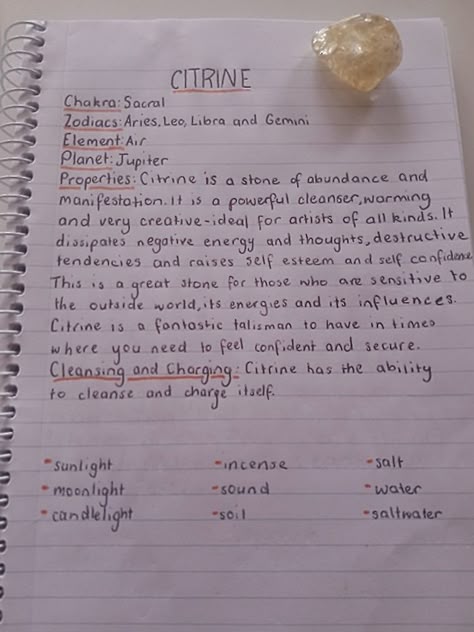 CITRINE
Chakra: Sacral
Zodiacs: Aries, Leo, Libra and Gemini
Element: Air
Planet: Jupiter
Properties: Citrine is a stone of abundance and
manifestation. It is a powerful cleanser, warming
and very creative-ideal for artists of all kinds. It
dissipates negative energy and thoughts, destructive
tendencies and raises self esteem and self confidence
This is a great stone for those who are sensitive to
the outside world, its energies and its influences.
Citrine is a fantastic talisman to have in times
where you need to feel confident and secure.
Cleansing and Charging: Citrine has the ability
to cleanse and charge itself.
-sunlight -incense -salt
-moonlight -sound -water
-candlelight -soil -saltwater